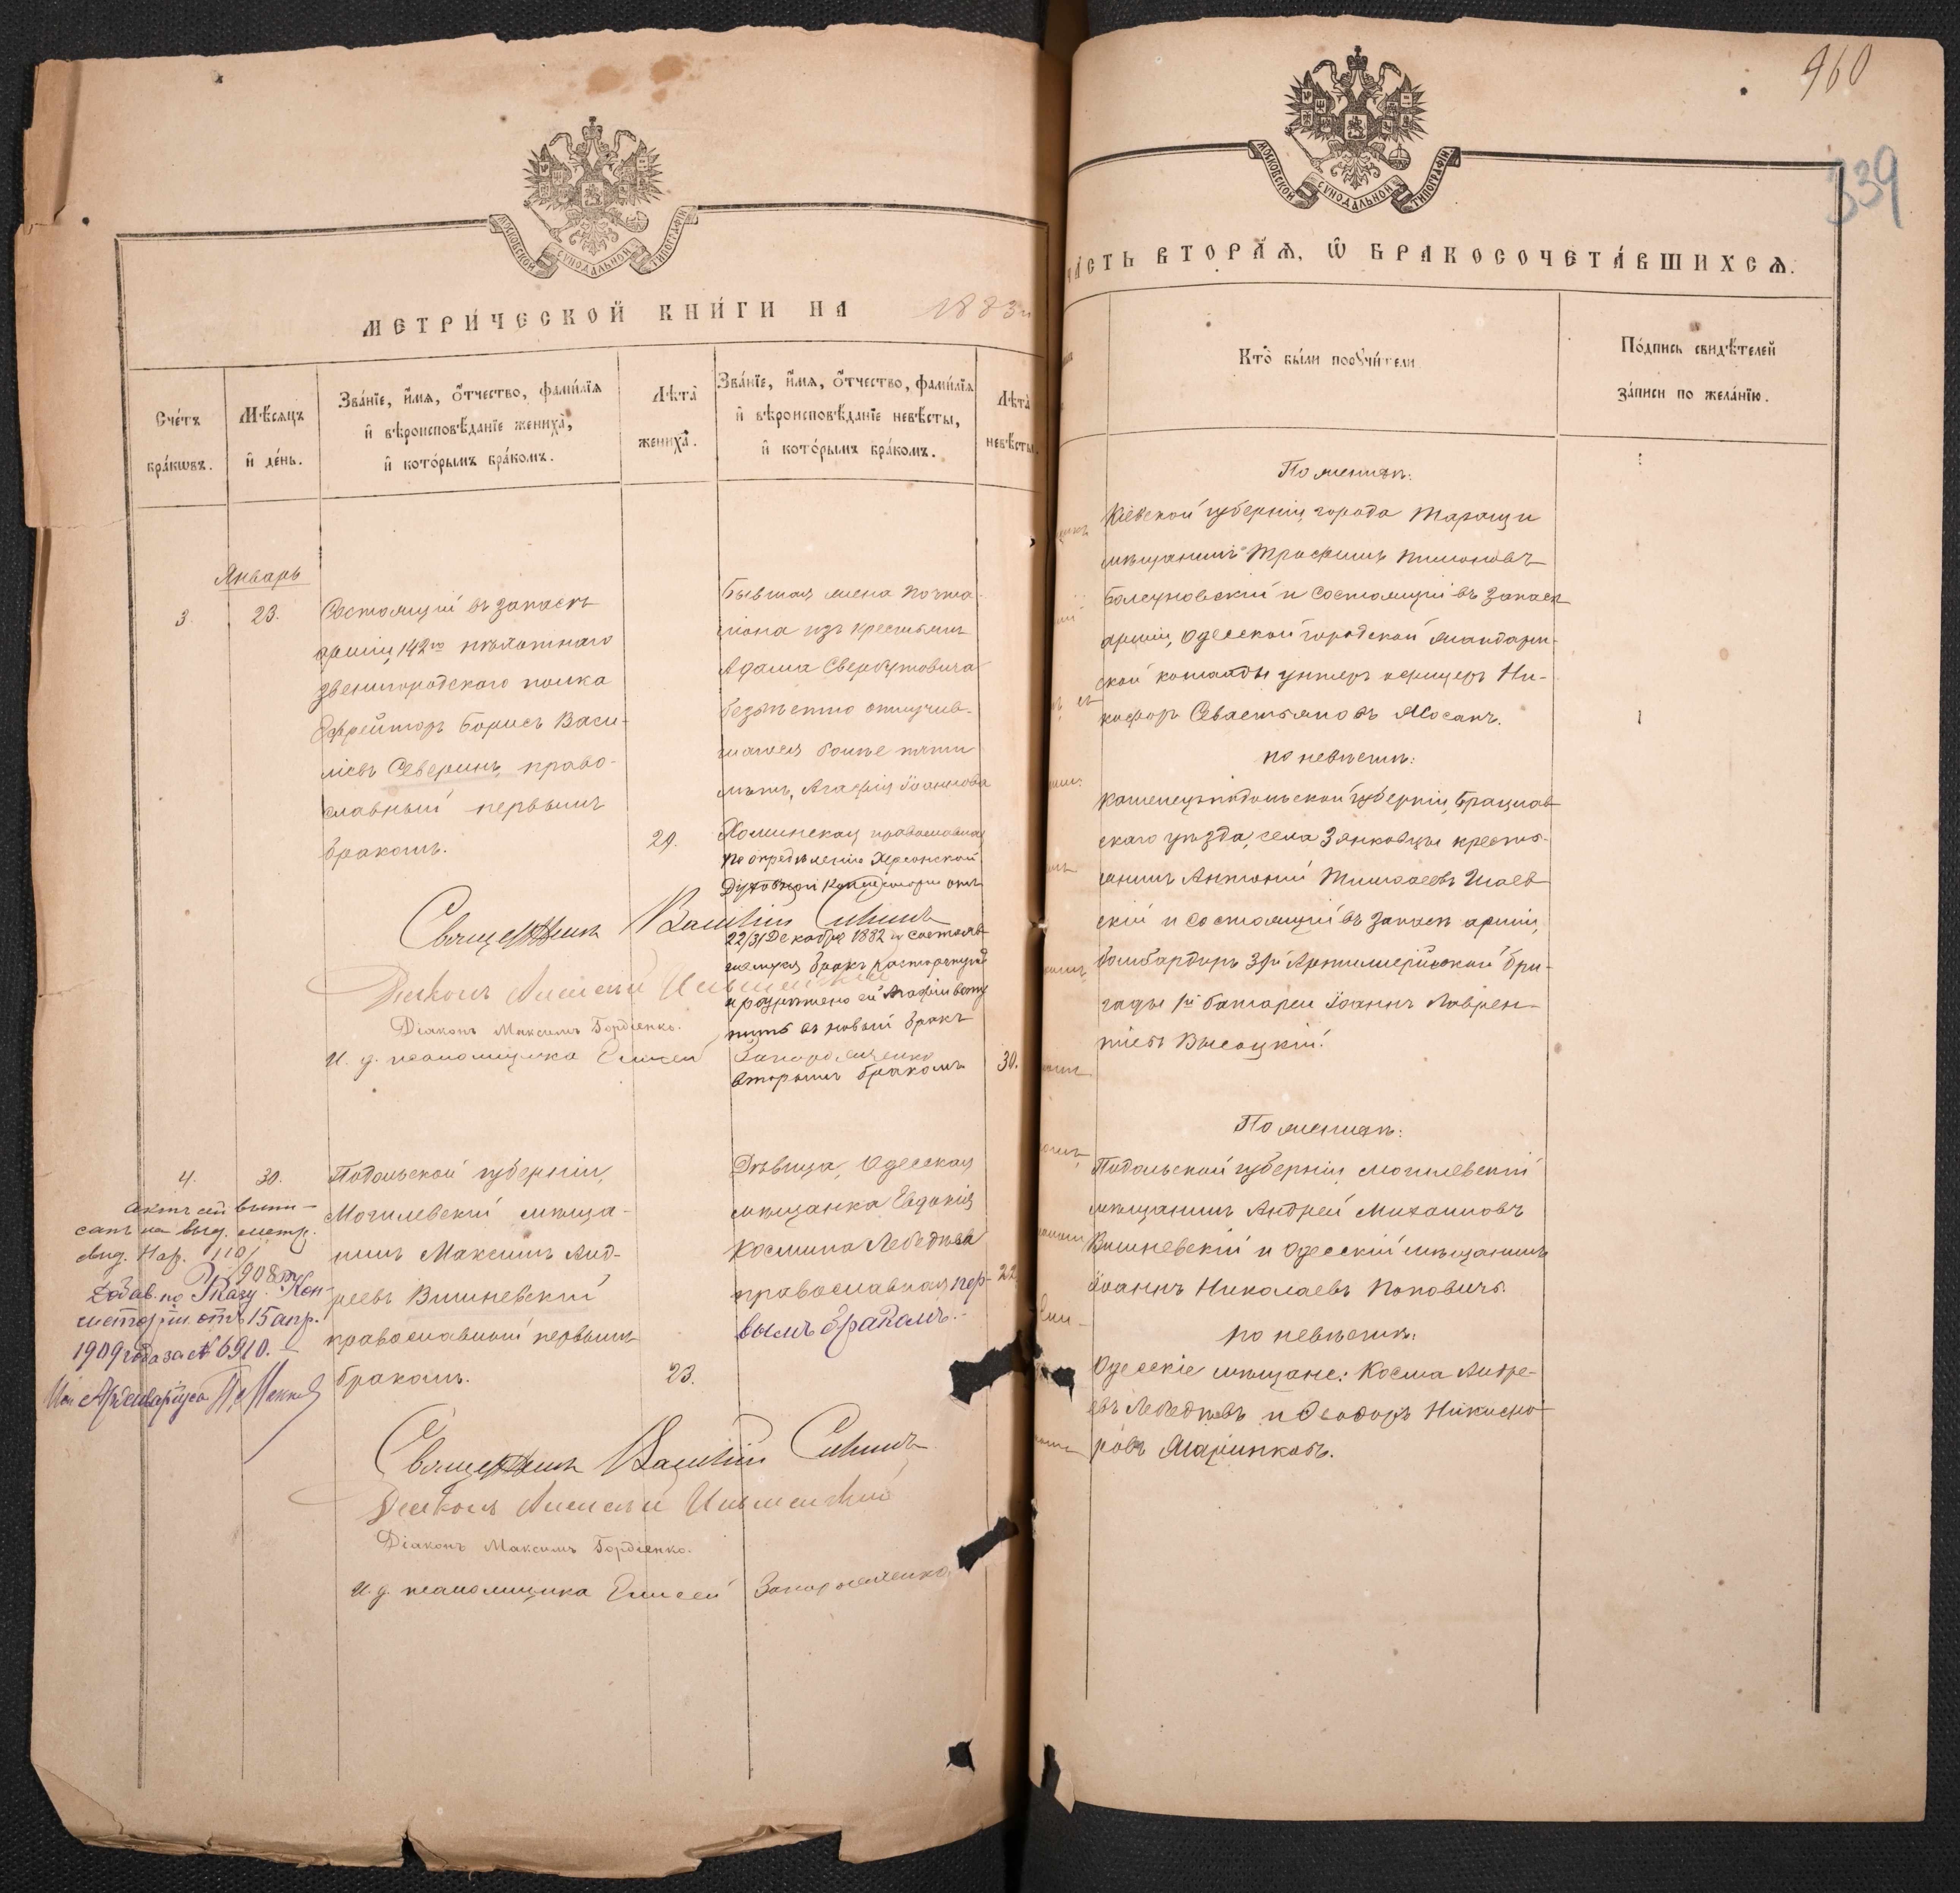 МОСКОВСКОЙ СѴНОДАЛЬНОЙ ТИПОГРАФІИ
МЕТРИ́ЧЕСКОЙ КНИ́ГИ НА 1883
Сче́тъ бра́кωвъ.
Мѣ́сяцъ и҆ де́нь.
Зва́нїе, и҆́мя, ѻ҆́тчество, фами́лїя
и҆ вѣроисповѣ́данїе жениха̀,
и҆ кото́рымъ бра́комъ.
Лѣ́та жениха̀.
Зва́нїе, и҆́мя, ѻ҆́тчество, фами́лїя
и҆ вѣроисповѣ́данїе невѣ́сты,
и҆ кото́рымъ бра́комъ.
Лѣ́та невѣ́сты.
Январь
3.
23.
Состоящій въ запасѣ
арміи, 142го пѣхотнаго
Звенигородского полка
Ефрейторъ Борисъ Васи-
ліевъ Северинъ, право-
славный первымъ
бракомъ.
29.
Бывшая жена почта-
ліона изъ крестьянъ
Адама
безвѣстно отлучив-
шагося болѣе пяти
лѣтъ, Агафія Іоаннова
Хоминская православная
по опредѣленію Херсонской
Духовной Консисторіи отъ
22/31 Декабря 1882 г. состояв-
шемуся бракъ расторгнутъ
и разрѣшено ей Агафіи всту
пить въ новый бракъ
вторымъ бракомъ
30.
Священникъ Василій
Діаконъ Алексій
Діаконъ Максимъ Гордіенко.
И. д. псаломщика Елисей Запорожченко
4.
30.
Подольской губерніи,
Могилевскій мѣща-
нинъ Максимъ Анд-
реевъ Вишневскій
православный первымъ
бракомъ.
23.
Дѣвица, Одесская
мѣщанка Евдокія
Космина Лебедѣва
православная пер-
вымъ бракомъ.
22
Актъ сей выпи-
санъ на выд. метр.
свид. Нар. 1101
1908
Консисторіи отъ 15 апр.
1909 года за № 6910.
Священникъ Василій
Діаконъ Алексій
Діаконъ Максимъ Гордіенко.
И. д. псаломщика Елисей Запорожченко.
960
339
МОСКОВСКОЙ СѴНОДАЛЬНОЙ ТИПОГРАФІИ
ЧА́СТЬ ВТОРА́Я, Ѽ БРАКОСОЧЕТА́ВШИХСЯ.
Кто̀ бы́ли порꙋчи́тели
По́дпись свидѣ́телей
за́писи по жела́нїю.
По женихѣ:
Кіевской губерніи, города Таращи
мѣщанинъ Трофимъ Тимоновъ
и состоящій въ запасѣ
арміи, Одесской городской жандарм-
ской команды унтеръ офицеръ Ни-
кифоръ Севастьяновъ Мосанъ.
по невѣстѣ:
Каменецъ подольской губерніи, Брацлав
скаго уѣзда, села Зянковцы кресть-
янинъ Антоній
скій и состоящій въ запасѣ арміи,
бомбардиръ Артиллерійской бри-
гады 1й батареи Іоаннъ Лаврен-
тіевъ Высоцкій.
По женихѣ:
Подольской губерніи, Могилевскій
мѣщанинъ Андрей Михаиловъ
Вишневскій и Одесскій мѣщанинъ
Іоаннъ Николаевъ Поповичъ.
по невѣстѣ:
Одесскіе мѣщане: Косма Андре-
евъ Лебедѣвъ и Ѳеодоръ Никифо-
ровъ Маринковъ.